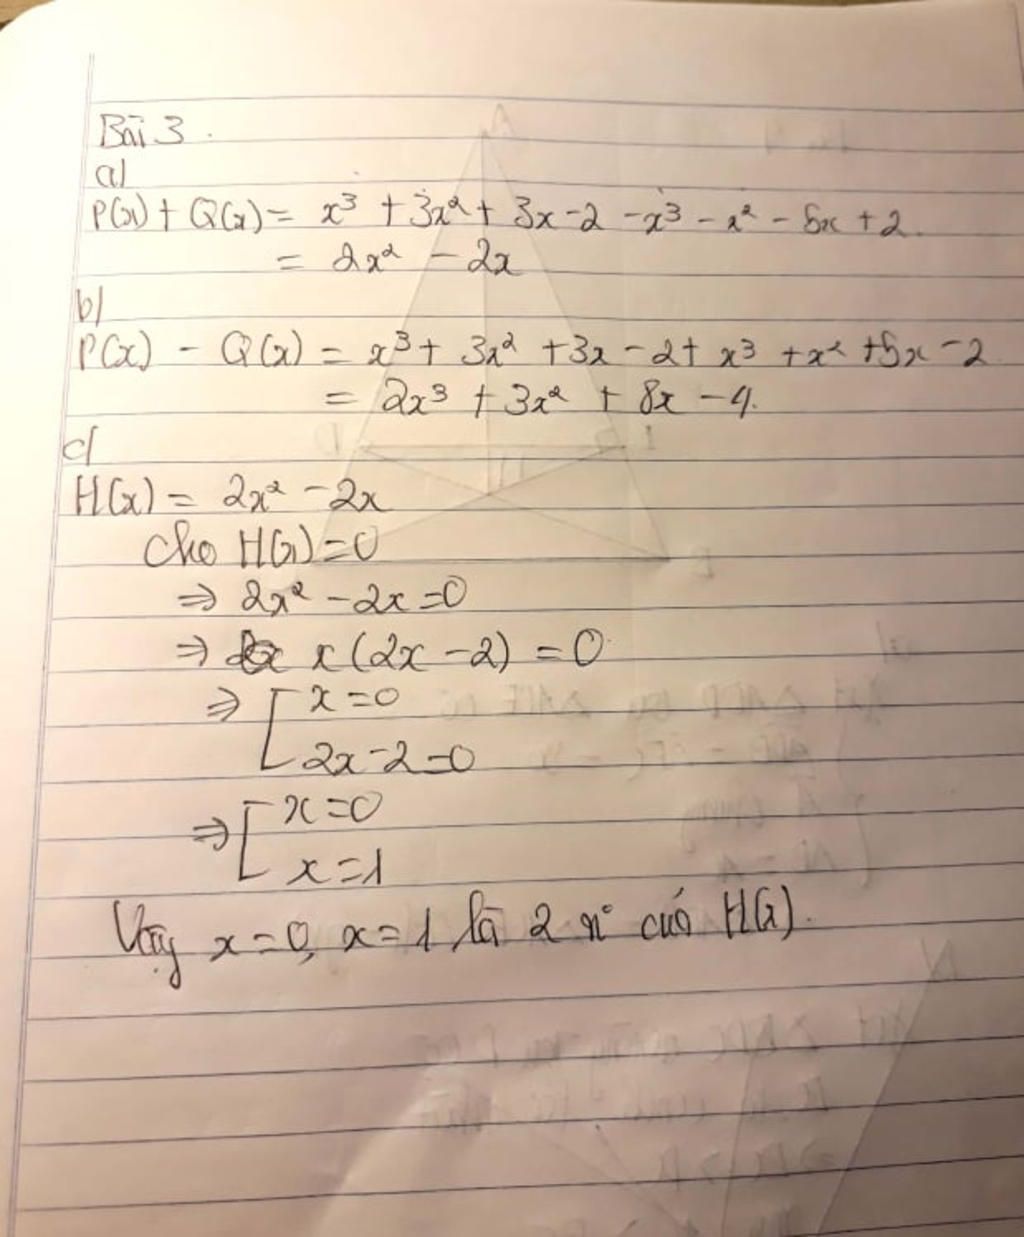 Bài 3.
a)
P(x) + Q(x) = x³ + 3x² + 3x - 2 - x³ - x² - 5x + 2.
= 2x² - 2x
b)
P(x) - Q(x) = x³ + 3x² + 3x - 2 + x³ + x² + 5x - 2
= 2x³ + 3x² + 8x - 4.
c)
H(x) = 2x² - 2x
Cho H(x) = 0
⇒ 2x² - 2x = 0
⇒ x(2x - 2) = 0
⇒ [ x = 0
2x - 2 = 0
⇒ [ x = 0
x = 1
Vậy x = 0, x = 1 là 2 n° của H(x).